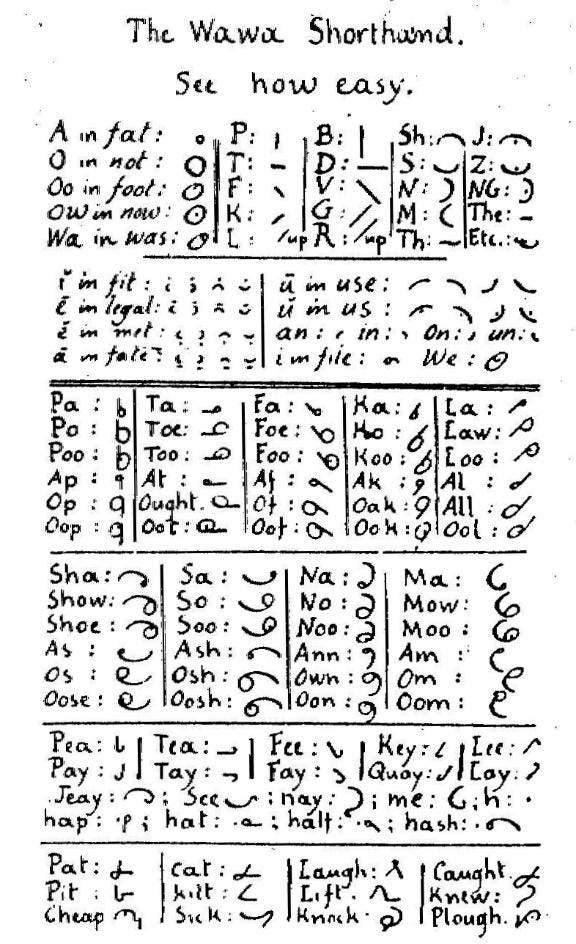 The Wawa Shorthand.
See how easy.
A in fat: P: B: Sh: J:
O in not: T: D: S: Z:
Oo in foot: F: V: N: NG:
Ow in now: K: G: M: The:
Wa in was: L: /up R: /up Th: Etc.:
ĭ in fit: ū in use:
ē in legal: ŭ in us:
ĕ in met: an: in: On: un:
ā in fate: i in file: We:
Pa: Ta: Fa: Ka: La:
Po: Toe: Foe: Ko: Law:
Poo: Too: Foo: Koo: Loo:
Ap: At: Af: Ak: Al:
Op: Ought. Of: Oak: All:
Oop: Oot: Oof: Ook: Ool:
Sha: Sa: Na: Ma:
Show: So: No: Mow:
Shoe: Soo: Noo: Moo:
As: Ash: Ann: Am:
Os: Osh: Own: Om:
Oose: Oosh: Oon: Oom:
Pea: Tea: Fee: Key: Lee:
Pay: Tay: Fay: Quay: Lay:
Jeay: ; See: ; nay: ; me: ; h:
hap: ; hat: ; halt: ; hash:
Pat: Cat: Laugh: Caught.
Pit: kilt: Lift. Knew:
Cheap Sick: Knock. Plough.